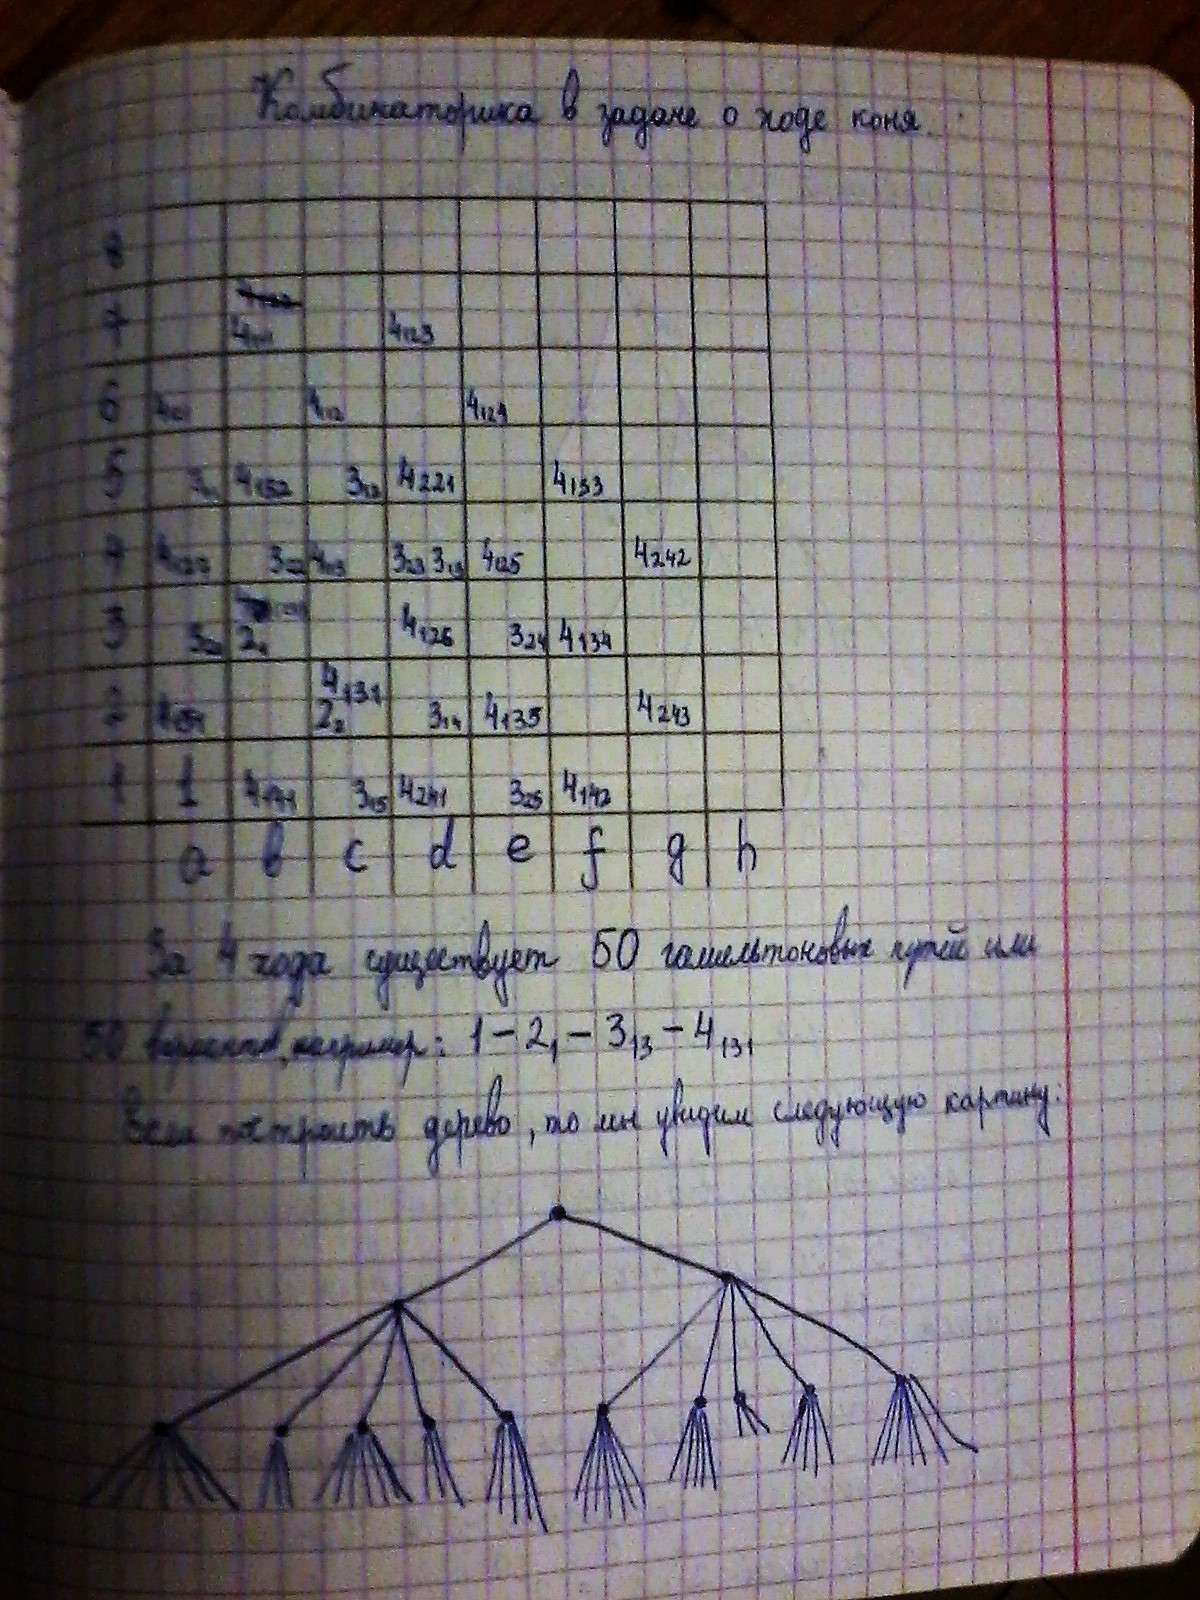 Комбинаторика в задаче о ходе коня.
8
7 4₁₂₃
6 4₁₁₂ 4₁₂₄
5 3₁₁ 4₁₅₂ 3₁₂ 4₂₂₁ 4₁₃₃
4 3₂₂ 4₁₁₃ 3₂₃ 3₁₃ 4₁₂₅ 4₂₄₂
3 2₁ 4₁₂₆ 3₂₄ 4₁₃₄
4₁₃₁
2 2₂ 3₁₄ 4₁₃₅ 4₂₄₃
1 1 4₁₄₁ 3₁₅ 4₂₄₁ 3₂₅ 4₁₄₂
a b c d e f g h
За 4 хода существует 50 гамильтоновых путей или
50 вариантов, например: 1 – 2₁ – 3₁₃ – 4₁₃₁
Если построить дерево, то мы увидим следующую картину: